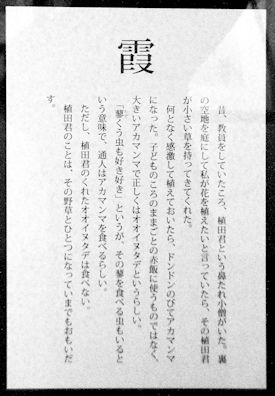 霞
昔、教員をしていたころ、植田君という鼻たれ小僧がいた。裏
の空地を庭にして私が花を植えたいと言っていたら、その植田君
が小さい草を持ってきてくれた。
何となく感激して植えておいたら、ドンドンのびてアカマンマ
になった。子どものころのままごとの赤飯に使うものではなく、
大きいアカマンマで正しくはオオイヌタデというらしい。
「蓼くう虫も好き好き」というが、その蓼を食べる虫もいると
いう意味で、通人はアカマンマを食べるらしい。
ただし、植田君のくれたオオイヌタデは食べない。
植田君のことは、その野草とひとつになっていまでもおもいだ
す。